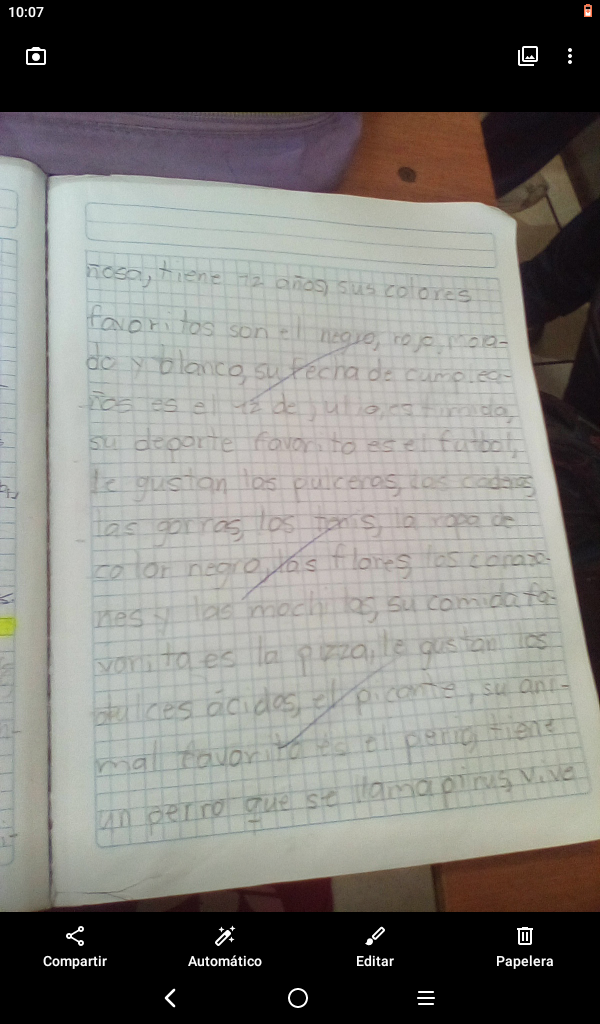 10:07
ñosa, tiene 12 años, sus colores
favoritos son el negro, rojo, mora-
do y blanco, su fecha de cumplea-
ños es el 12 de julio, es timida,
su deporte favorito es el futbol,
le gustan las pulceras, los cadenas,
las gorras, los tenis, la ropa de
color negro, las flores, los corazo-
nes y las mochilas, su comida fa-
vorita es la pizza, le gustan los
dulces ácidos, el picante, su ani-
mal favorito es el perro, tiene
un perro que se llama pirus, vive
Compartir
Automático
Editar
Papelera